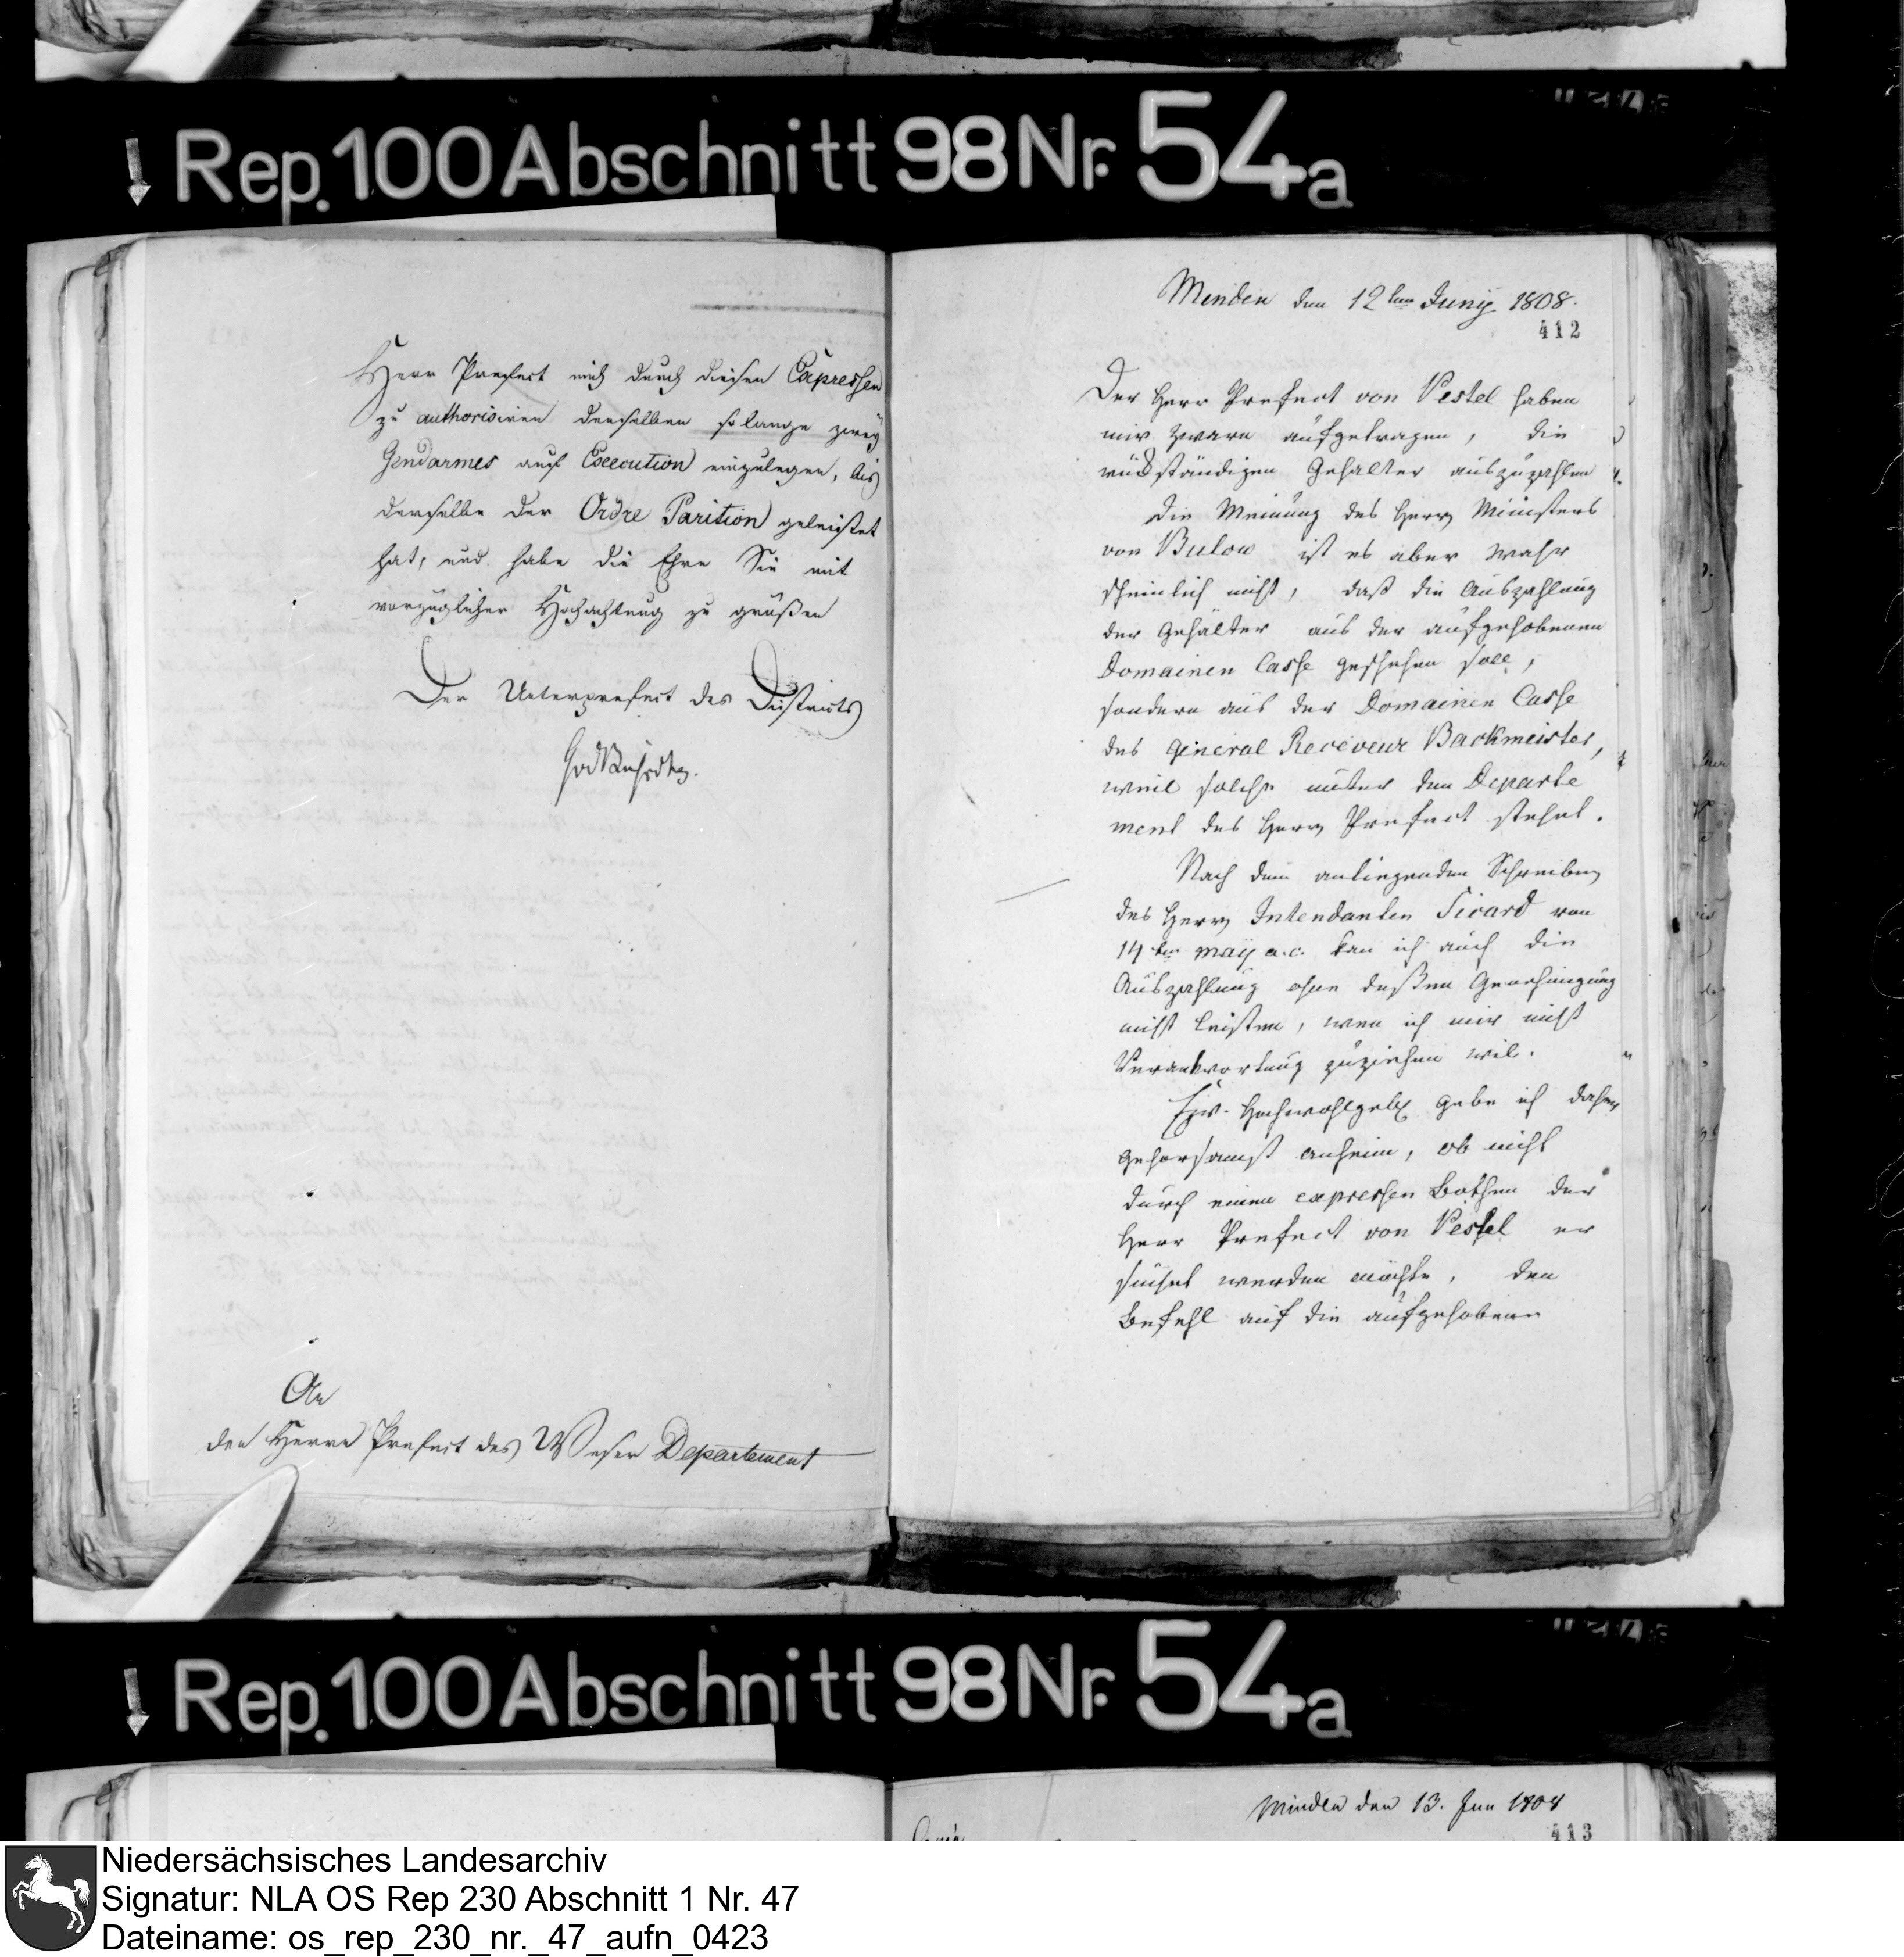 Rep. 100 Abschnitt 98 Nr. 54a
Herr Prefect mich durch diesen Expressen
zu authorisiren denselben so lange zwey
Gendarmes auf Execution einzulegen, bis
derselbe der Ordre Parition geleistet
hat, und habe die Ehre Sie mit
vorzüglicher Hochachtung zu grüßen
Der Unterprefect des Districts
An
den Herrn Prefect des Weser Departement
Minden den 12ten Junij 1808.
412
Der Herr Prefect von Pestel haben
mir zwarn aufgetragen, die
rückständigen Gehalter auszuzahlen
die Meinung des Herrn Ministers
von Bulow ist es aber wahr
scheinlich nicht, daß die Auszahlung
der Gehälter aus der aufgehobenen
Domainen Casse geschehen soll,
sondern aus der Domainen Casse
des General Receveur Backmeister,
weil solche unter dem Departe
ment des Herrn Prefect stehet.
Nach dem anliegenden Schreiben
des Herrn Intendanten Sicard von
14ten maij a.c. kan ich auch die
Auszahlung ohne deßen Genehmigung
nicht leisten, wen ich mir nicht
Verantwortung zuziehen wil.
Ew. Hochwohlgeb. gebe ich daher
gehorsamst anheim, ob nicht
durch einen expressen Bothen der
Herr Prefect von Pestel er
suchet werden möchte, den
Befehl auf die aufgehobene
Rep. 100 Abschnitt 98 Nr. 54a
Minden den 13. Jun 1808
413
Niedersächsisches Landesarchiv
Signatur: NLA OS Rep 230 Abschnitt 1 Nr. 47
Dateiname: os_rep_230_nr._47_aufn_0423